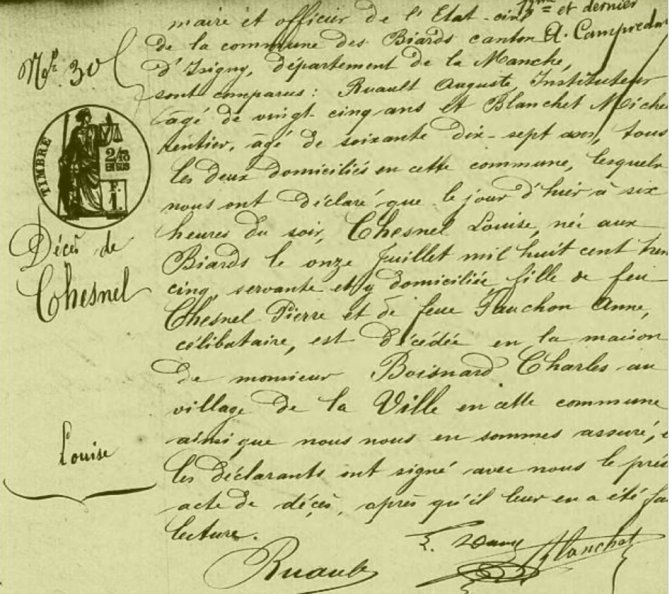 12me et dernier
maire et officier de l'Etat-civil
de la commune des Biards canton A. Campredon
d'Isigny, département de la Manche,
sont comparus : Ruault Auguste Instituteur
âgé de vingt-cinq ans et Blanchet Miche
rentier, âgé de soixante dix-sept ans, tous
les deux domiciliés en cette commune, lesquels
nous ont déclaré que le jour d'hier à six
heures du soir, Chesnel Louise, née aux
Biards le onze Juillet mil huit cent tren
cinq servante et y domiciliée, fille de feu
Chesnel Pierre et de feue Fauchon Anne,
célibataire, est décédée en la maison
de monsieur Boisnard Charles au
village de la Ville en cette commune
ainsi que nous nous en sommes assuré, e
les déclarants ont signé avec nous le prés
acte de décès, après qu'il leur en a été fa
lecture.
Ruault
Blanchet
No 30
TIMBRE
2/10
EN SUS
F.
1.
Décès de
Chesnel
Louise